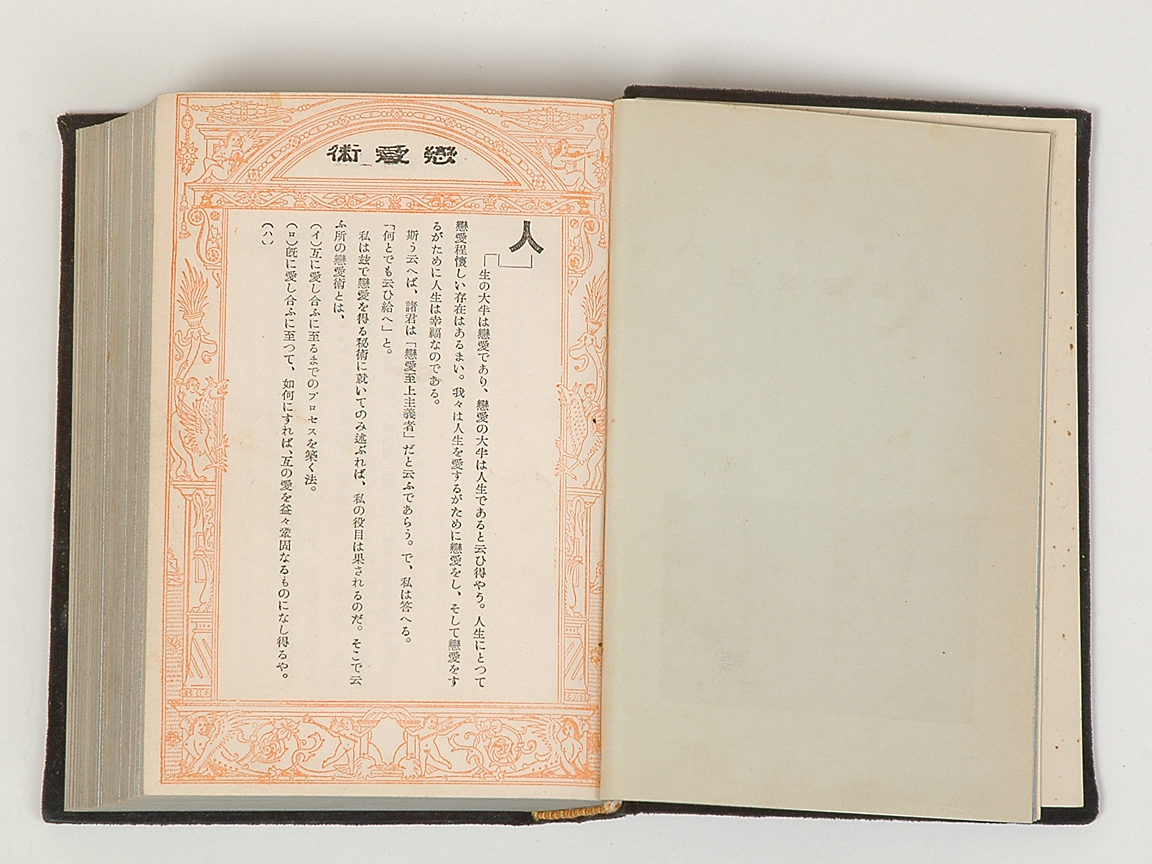 戀愛術
人生の大半は戀愛であり、戀愛の大半は人生であると云ひ得やう。人生にとつて
戀愛程懷しい存在はあるまい。我々は人生を愛するがために戀愛をし、そして戀愛をす
るがために人生は幸福なのである。
斯う云へば、諸君は「戀愛至上主義者」だと云ふであらう。で、私は答へる。
「何とでも云ひ給へ」と。
私は玆で戀愛を得る秘術に就いてのみ述ぶれば、私の役目は果されるのだ。そこで云
ふ所の戀愛術とは、
(イ)互に愛し合ふに至るまでのプロセスを築く法。
(ロ)既に愛し合ふに至つて、如何にすれば、互の愛を益々鞏固なるものになし得るや。
(ハ)